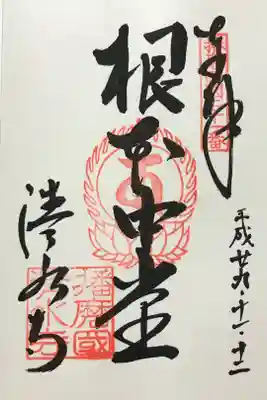 奉拝
平成廿九・十一・十二
根本中堂
清水寺
播磨國
清水寺